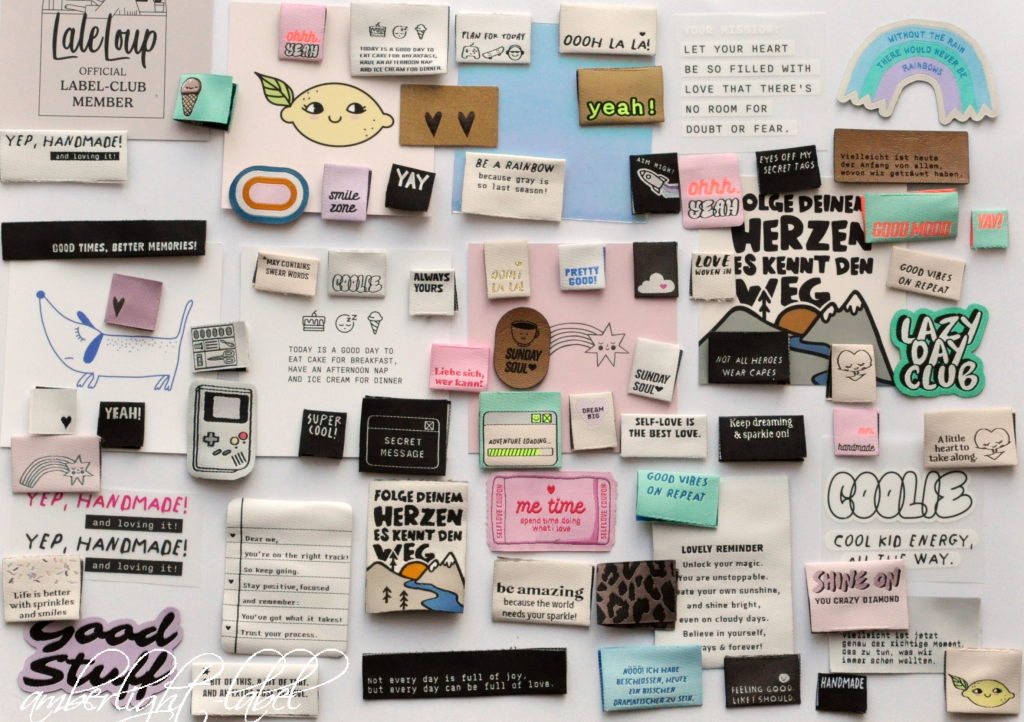 LaLeLoup
OFFICIAL
LABEL-CLUB
MEMBER
ohhh.
YEAH
TODAY IS A GOOD DAY TO
EAT CAKE FOR BREAKFAST,
HAVE AN AFTERNOON NAP
AND ICE CREAM FOR DINNER.
PLAN FOR TODAY
OOOH LA LA!
YOUR MISSION:
LET YOUR HEART
BE SO FILLED WITH
LOVE THAT THERE'S
NO ROOM FOR
DOUBT OR FEAR.
WITHOUT THE RAIN
THERE WOULD NEVER BE
RAINBOWS
yeah!
YEP, HANDMADE!
and loving it!
smile
zone
YAY
BE A RAINBOW
because gray is
so last season!
AIM HIGH!
ohhh.
YEAH
EYES OFF MY
SECRET TAGS
Vielleicht ist heute
der Anfang von allem,
wovon wir geträumt haben.
GOOD MOOD
YAY!
GOOD TIMES, BETTER MEMORIES!
*MAY CONTAINS
SWEAR WORDS
COOLIE
ALWAYS
YOURS
OOOH
LA LA!
PRETTY
GOOD!
LOVE
WOVEN IN
FOLGE DEINEM
HERZEN
ES KENNT DEN
WEG
GOOD VIBES
ON REPEAT
TODAY IS A GOOD DAY TO
EAT CAKE FOR BREAKFAST,
HAVE AN AFTERNOON NAP
AND ICE CREAM FOR DINNER
Liebe sich,
wer kann!
SUNDAY
SOUL
SUNDAY
SOUL
NOT ALL HEROES
WEAR CAPES
LAZY
DAY
CLUB
YEAH!
SUPER
COOL!
SECRET
MESSAGE
ADVENTURE LOADING...
DREAM
BIG
SELF-LOVE IS
THE BEST LOVE.
Keep dreaming
& sparkle on!
handmade
A little
heart to
take along.
YEP, HANDMADE!
and loving it!
YEP, HANDMADE!
and loving it!
Dear me,
you're on the right track!
So keep going.
Stay positive, focused
and remember:
You've got what it takes!
Trust your process.
FOLGE DEINEM
HERZEN
ES KENNT DEN
WEG
SELFLOVE COUPON
me time
spend time doing
what i love
SELFLOVE COUPON
GOOD VIBES
ON REPEAT
LOVELY REMINDER
Unlock your magic.
You are unstoppable.
ate your own sunshine,
and shine bright,
even on cloudy days.
Believe in yourself,
days & forever!
COOLIE
COOL KID ENERGY,
ALL THE WAY.
Life is better
with sprinkles
and smiles
be amazing
because the world
needs your sparkle!
SHINE ON
YOU CRAZY DIAMOND
Vielleicht ist jetzt
genau der richtige Moment,
das zu tun, was wir
immer schon wollten.
Good
Stuff
A BIT OF THIS, A BIT OF THAT,
Not every day is full of joy,
but every day can be full of love.
NÖÖÖ! ICH HABE
BESCHLOSSEN, HEUTE
EIN BISSCHEN
DRAMATISCHER ZU SEIN.
FEELING GOOD
LIKE I SHOULD.
HANDMADE
amberlight-label